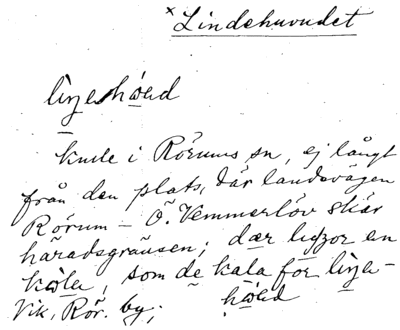 ×Lindehuvudet
liŋehǿɛd
kulle i Rörums sn, ej långt
från den plats, där landsvägen
Rörum – Ö. Vemmerlöv skär
häradsgränsen; dær legor en
som de kala for liŋe-
Vik, Rör. by; hǿɛd